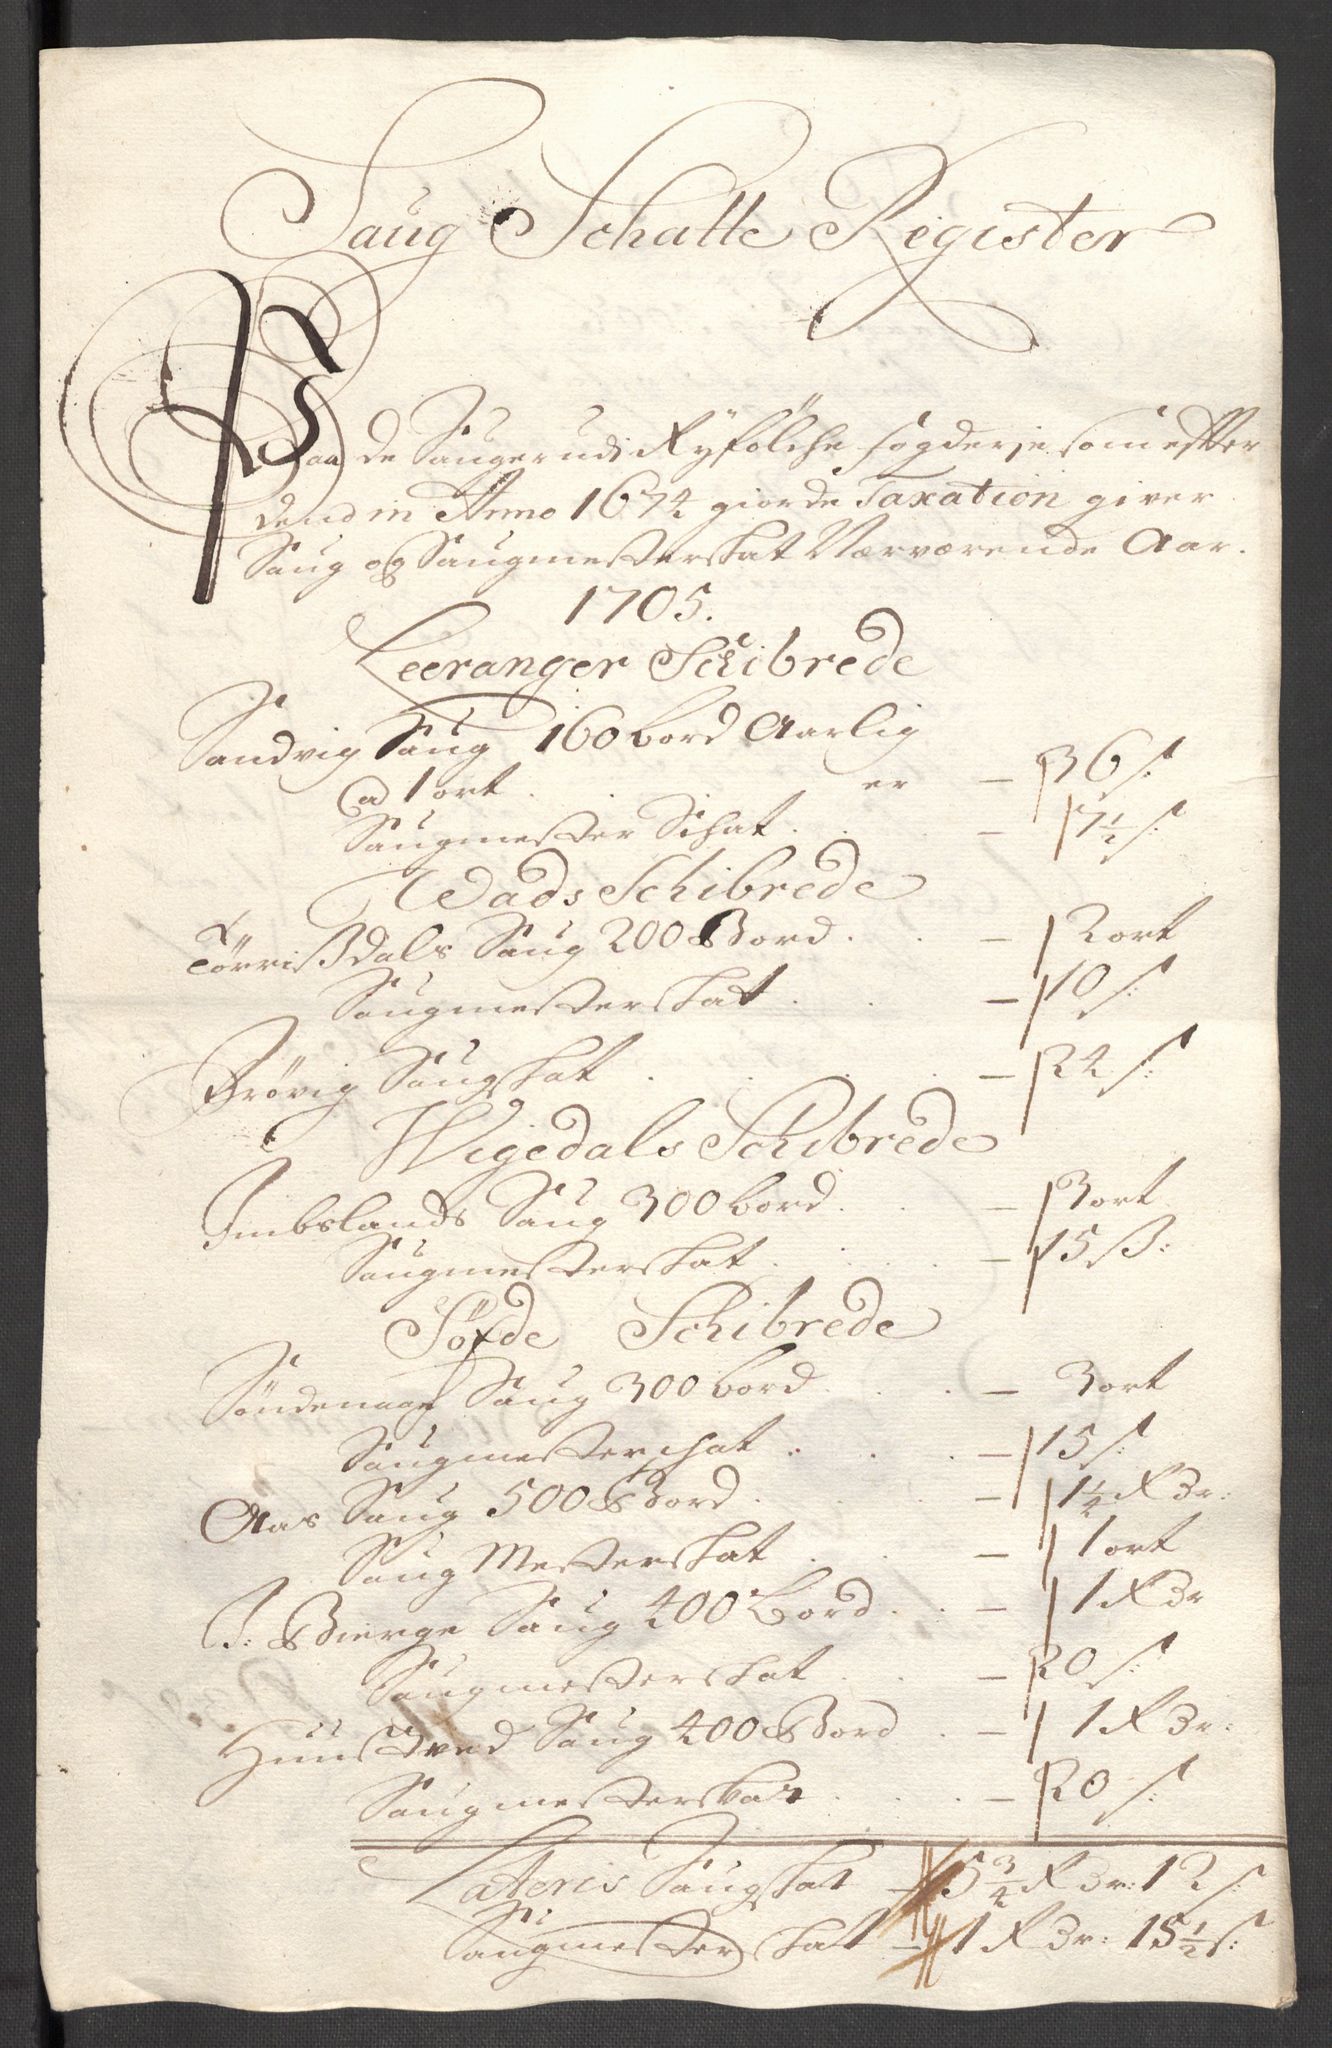 Saug Schatte Register
Paa de Sauger udi Ryfølche fogderje som effter
dend in Anno 1674 giorde Taxation giver
Saug og Saugmesterskat Nærværende Aar.
1705.
Leeranger Schibrede
Sandvig Saug 160 bord Aarlig
a 1 ort . er – 36 ß:
Saugmester Schat . – 7½ ß:
Wads Schibrede
Tørrisdals Saug 200 Bord . . – 2 ort
Saugmesterskat . . – 10 ß:
Brøvig Saugskat . . . – 24 ß:
Wigedals Schibrede
Imbslands Saug 300 bord . . – 3 ort
Saugmesterskat . . . – 15 ß:
Søfde Schibrede
Søndenaae Saug 300 bord . . . – 3 ort
Saugmesterschat . . . – 15 ß:
Aas Saug 500 Bord . . . – 1¼ Rdr:
Saug Mesterskat . . – 1 ort
I: Bierge Saug 400 Bord . . – 1 Rdr
Saugmesterskat . . – 20 ß:
Huustved Saug 400 Bord . – 1 Rdr:
Saugmesterskat . . . – 20 ß:
Lateris Saugskat – 5¾ Rdr: 12 ß:
Saugmesterskat – 1 Rdr: 15½ ß: